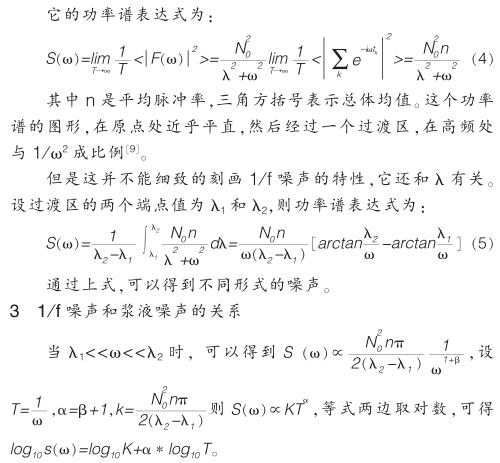 它的功率谱表达式为：
S(ω)=lim T→∞ 1/T <|F(ω)|²>= N₀²/(λ²+ω²) lim T→∞ 1/T <|∑ₖ e^(-iωtₖ)|²>= N₀²n/(λ²+ω²) (4)
其中 n 是平均脉冲率，三角方括号表示总体均值。这个功率
谱的图形，在原点处近乎平直，然后经过一个过渡区，在高频处
与 1/ω² 成比例[9]。
但是这并不能细致的刻画 1/f 噪声的特性，它还和 λ 有关。
设过渡区的两个端点值为 λ₁ 和 λ₂，则功率谱表达式为：
S(ω)= 1/(λ₂-λ₁) ∫λ₁^λ₂ N₀²n/(λ²+ω²) dλ= N₀²n/(ω(λ₂-λ₁)) [arctan λ₂/ω -arctan λ₁/ω] (5)
通过上式，可以得到不同形式的噪声。
3 1/f 噪声和浆液噪声的关系
当 λ₁<<ω<<λ₂ 时，可以得到 S (ω)∝ N₀²nπ/(2(λ₂-λ₁)) 1/ω^(1+β) ，设
T= 1/ω ,α=β+1,k= N₀²nπ/(2(λ₂-λ₁)) 则 S(ω)∝KT^α，等式两边取对数，可得
log₁₀s(ω)=log₁₀K+α*log₁₀T。